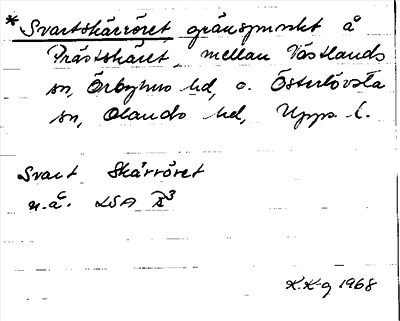 * Svartskärröret gränspunkt å
Prästskäret, mellan Västlands
sn, Örbyhus hd, o. Österlövsta
sn, Olands hd, Upps l.
Svart Skärröret
n.å. LSA
K.K-g 1968